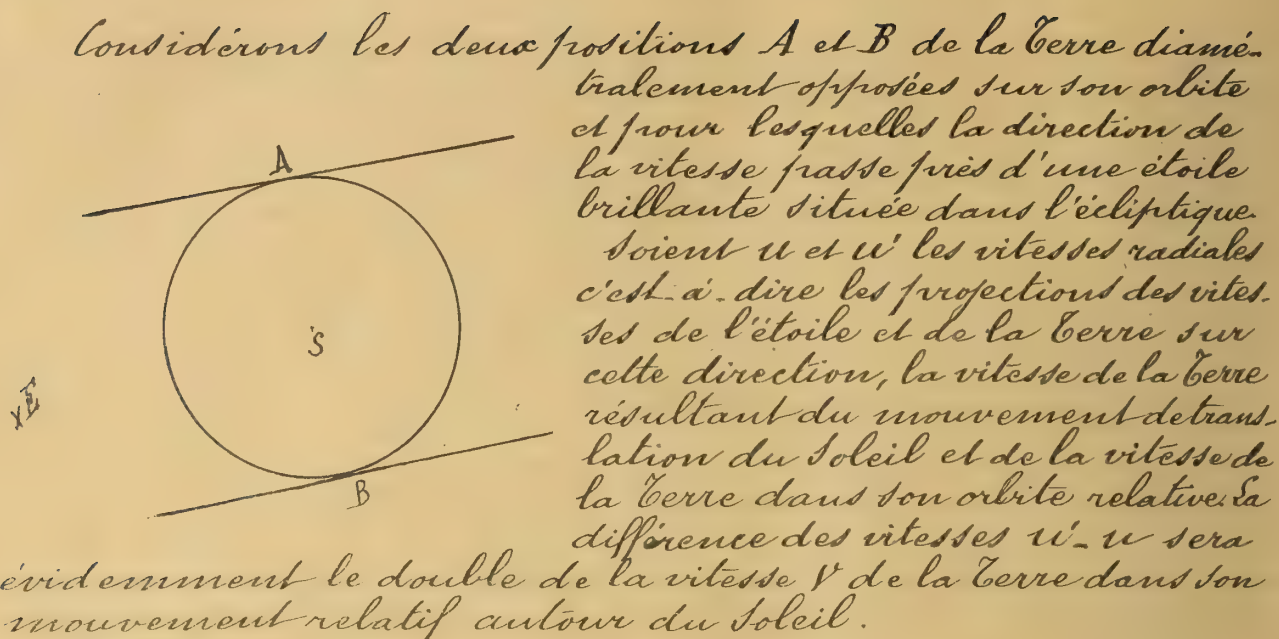 Considérons les deux positions A et B de la Terre diamé-
tralement opposées sur son orbite
et pour lesquelles la direction de
la vitesse passe près d'une étoile
brillante située dans l'écliptique.
Soient u et u' les vitesses radiales
c'est-à-dire les projections des vites-
ses de l'étoile et de la Terre sur
cette direction, la vitesse de la Terre
résultant du mouvement de trans-
lation du Soleil et de la vitesse de
la Terre dans son orbite relative. La
différence des vitesses u'-u sera
évidemment le double de la vitesse V de la Terre dans son
mouvement relatif autour du Soleil.
A
S
xE
B